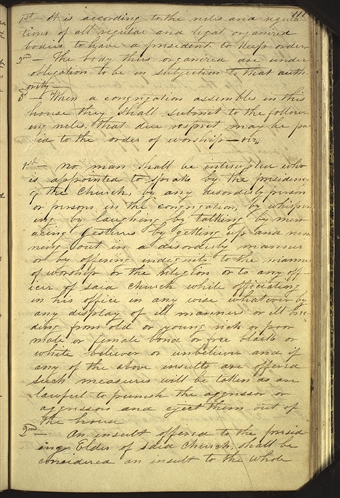 111
1st — It is according to the rules and regula
tions of all regular and legal organized
bodies to have a president to keep order
2nd — The body thus organized are under
obligation to be in subjection to that auth
ority
3d — When a congregation assembles in this
house they shall submit to the follow
ing rules, that due respect may be pa
id to the order of worship — viz
1st — no man shall be interrupted who
is appointed to speak by the presidency
of the Church, by any disorderly person
or persons in the congregation, by whisper
ing by laughing by talking by men
acing Gestures by getting up and run
ning out in a disorderly manner
or by offering indignity to the manner
of worship or the religion or to any off
icer of said Church while officiating
in his office in any wise whatsoever by
any display of ill manners or ill bree
ding from old or young rich or poor
male or female bond or free black or
white believer or unbeliever and if
any of the above insults are offered
such measures will be taken as are
lawful to punish the aggressor or
aggressors and eject them out of
the house
2nd — An insult offered to the presid
ing Elder of said Church, shall be
considered an insult to the whole